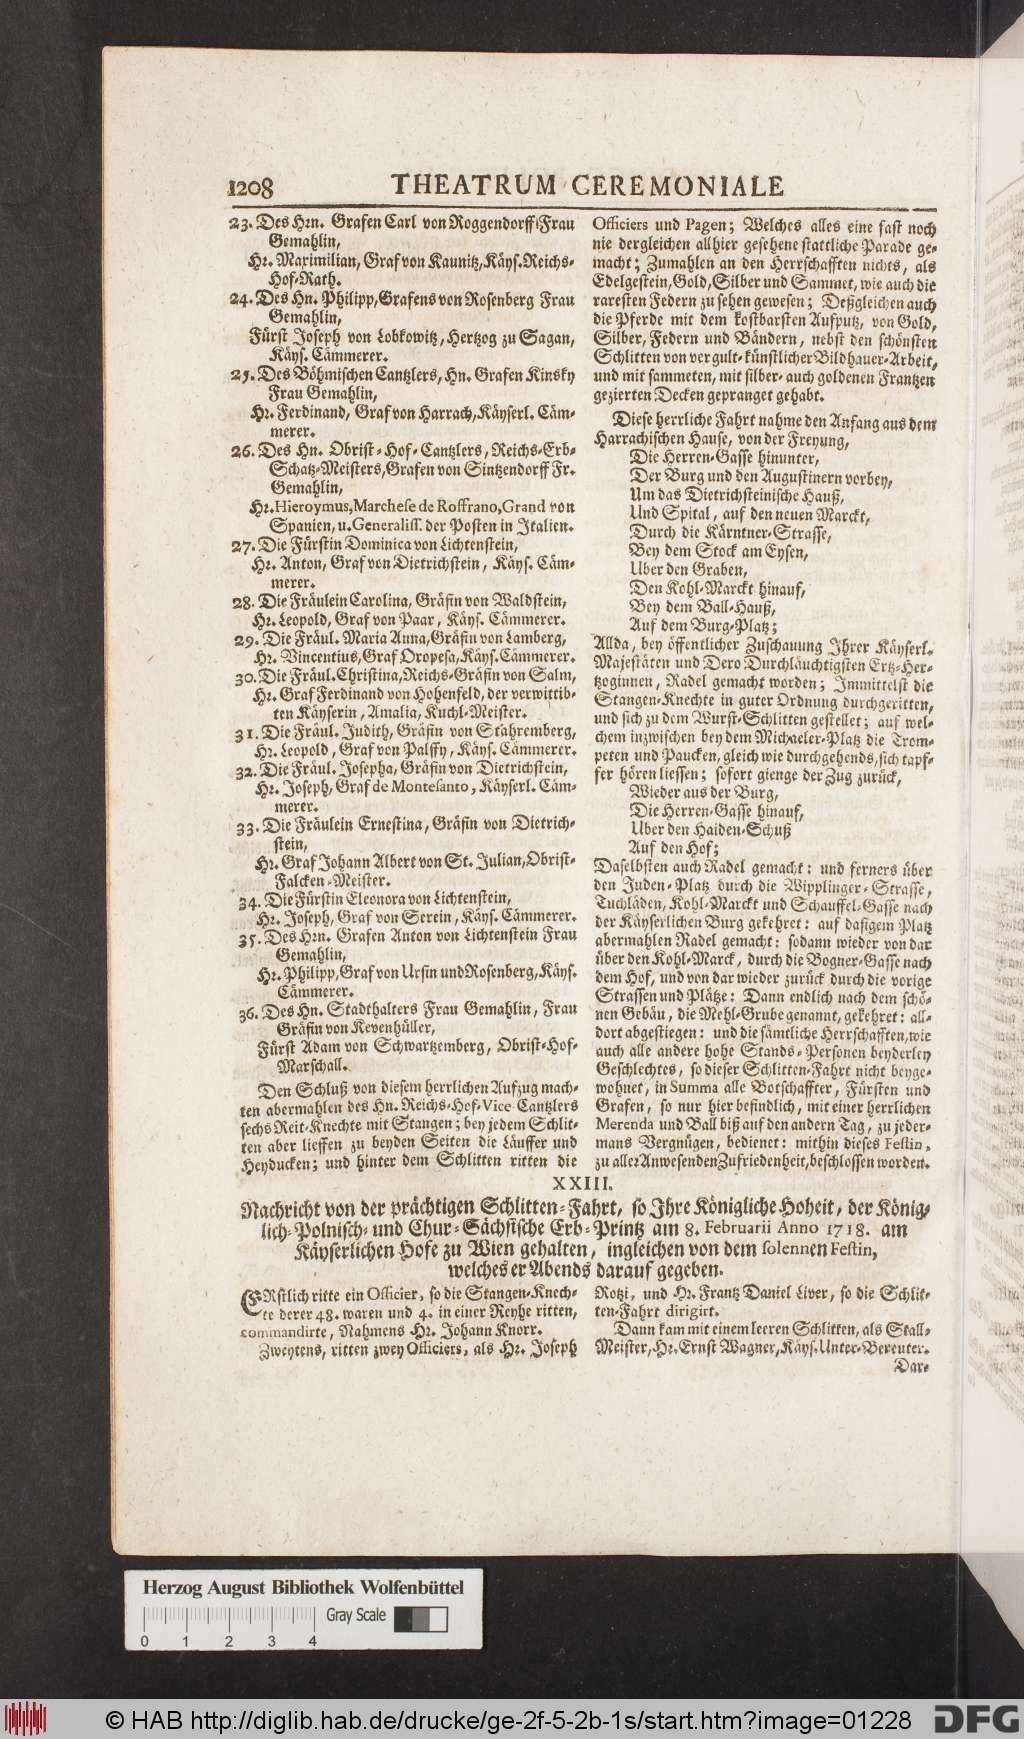 1208 THEATRUM CEREMONIALE
23. Des Hrn. Grafen Carl von Roggendorff Frau
Gemahlin,
Hr. Maximilian, Graf von Kaunitz, Käys. Reichs-
Hof-Rath.
24. Des Hn. Philipp, Grafens von Rosenberg Frau
Gemahlin,
Fürst Joseph von Lobkowitz, Hertzog zu Sagan,
Käys. Cämmerer.
25. Des Böhmischen Cantzlers, Hn. Grafen Kinsky
Frau Gemahlin,
Hr. Ferdinand, Graf von Harrach, Käyserl. Cäm-
merer.
26. Des Hn. Obrist-Hof-Cantzlers, Reichs-Erb-
Schatz-Meisters, Grafen von Sintzendorff Fr.
Gemahlin,
Hr. Hieroymus, Marchese de Roffrano, Grand von
Spanien, u. Generaliss. der Posten in Italien.
27. Die Fürstin Dominica von Lichtenstein,
Hr. Anton, Graf von Dietrichstein, Käys. Cäm-
merer.
28. Die Fräulein Carolina, Gräfin von Waldstein,
Hr. Leopold, Graf von Paar, Käys. Cämmerer.
29. Die Fräul. Maria Anna, Gräfin von Lamberg,
Hr. Vincentius, Graf Oropesa, Käys. Cämmerer.
30. Die Fräul. Christina, Reichs-Gräfin von Salm,
Hr. Graf Ferdinand von Hohenfeld, der verwittib-
ten Käyserin, Amalia, Kuchl-Meister.
31. Die Fräul. Judith, Gräfin von Stahremberg,
Hr. Leopold, Graf von Palffy, Käys. Cämmerer.
32. Die Fräul. Josepha, Gräfin von Dietrichstein,
Hr. Joseph, Graf de Montesanto, Käyserl. Cäm-
merer.
33. Die Fräulein Ernestina, Gräfin von Dietrich-
stein,
Hr. Graf Johann Albert von St. Julian, Obrist-
Falcken-Meister.
34. Die Fürstin Eleonora von Lichtenstein,
Hr. Joseph, Graf von Serein, Käys. Cämmerer.
35. Des Hrn. Grafen Anton von Lichtenstein Frau
Gemahlin,
Hr. Philipp, Graf von Ursin und Rosenberg, Käys.
Cämmerer.
36. Des Hn. Stadthalters Frau Gemahlin, Frau
Gräfin von Kevenhüller,
Fürst Adam von Schwartzemberg, Obrist-Hof-
Marschall.
Den Schluß von diesem herrlichen Aufzug mach-
ten abermahlen des Hn. Reichs-Hof-Vice-Cantzlers
sechs Reit-Knechte mit Stangen; bey jedem Schlit-
ten aber lieffen zu beyden Seiten die Läuffer und
Heyducken; und hinter dem Schlitten ritten die
Officiers und Pagen; Welches alles eine fast noch
nie dergleichen allhier gesehene stattliche Parade ge-
macht; Zumahlen an den Herrschafften nichts, als
Edelgestein, Gold, Silber und Sammet, wie auch die
raresten Federn zu sehen gewesen; Deßgleichen auch
die Pferde mit dem kostbarsten Aufputz, von Gold,
Silber, Federn und Bändern, nebst den schönsten
Schlitten von vergult-künstlicher Bildhauer-Arbeit,
und mit sammeten, mit silber- auch goldenen Frantzen
gezierten Decken gepranget gehabt.
Diese herrliche Fahrt nahme den Anfang aus dem
Harrachischen Hause, von der Freyung,
Die Herren-Gasse hinunter,
Der Burg und den Augustinern vorbey,
Um das Dietrichsteinische Hauß,
Und Spital, auf den neuen Marckt,
Durch die Kärntner-Strasse,
Bey dem Stock am Eysen,
Uber den Graben,
Den Kohl-Marckt hinauf,
Bey dem Ball-Hauß,
Auf dem Burg-Platz;
Allda, bey öffentlicher Zuschauung Ihrer Käyserl.
Majestäten und Dero Durchläuchtigsten Ertz-Her-
tzoginnen, Radel gemacht worden; Immittelst die
Stangen-Knechte in guter Ordnung durchgeritten,
und sich zu dem Wurst-Schlitten gestellet; auf wel-
chem inzwischen bey dem Michaeler-Platz die Trom-
peten und Paucken, gleich wie durchgehends, sich tapf-
fer hören liessen; sofort gienge der Zug zurück,
Wieder aus der Burg,
Die Herren-Gasse hinauf,
Uber den Haiden-Schuß
Auf den Hof;
Daselbsten auch Radel gemacht: und ferners über
den Juden-Platz durch die Wipplinger-Strasse,
Tuchläden, Kohl-Marckt und Schauffel-Gasse nach
der Käyserlichen Burg gekehret: auf dasigem Platz
abermahlen Radel gemacht: sodann wieder von dar
über den Kohl-Marck, durch die Bogner-Gasse nach
dem Hof, und von dar wieder zurück durch die vorige
Strassen und Plätze: Dann endlich nach dem schö-
nen Gebäu, die Mehl-Grube genannt, gekehret: all-
dort abgestiegen: und die sämtliche Herrschafften, wie
auch alle andere hohe Stands-Personen beyderley
Geschlechtes, so dieser Schlitten-Fahrt nicht beyge-
wohnet, in Summa alle Botschaffter, Fürsten und
Grafen, so nur hier befindlich, mit einer herrlichen
Merenda und Ball biß auf den andern Tag, zu jeder-
mans Vergnügen, bedienet: mithin dieses Festin,
zu aller Anwesenden Zufriedenheit, beschlossen worden.
XXIII.
Nachricht von der prächtigen Schlitten-Fahrt, so Ihre Königliche Hoheit, der König-
lich-Polnisch- und Chur-Sächsische Erb-Printz am 8. Februarii Anno 1718. am
Käyserlichen Hofe zu Wien gehalten, ingleichen von dem solennen Festin,
welches er Abends darauf gegeben.
ERstlich ritte ein Officier, so die Stangen-Knech-
te derer 48. waren und 4. in einer Reyhe ritten,
commandirte, Nahmens Hr. Johann Knorr.
Zweytens, ritten zwey Officiers, als Hr. Joseph
Rotzi, und Hr. Frantz Daniel Liver, so die Schlit-
ten-Fahrt dirigirt.
Dann kam mit einem leeren Schlitten, als Stall-
Meister, Hr. Ernst Wagner, Käys. Unter-Bereuter.
Dar-
Herzog August Bibliothek Wolfenbüttel
Gray Scale
0 1 2 3 4
© HAB http://diglib.hab.de/drucke/ge-2f-5-2b-1s/start.htm?image=01228 DFG